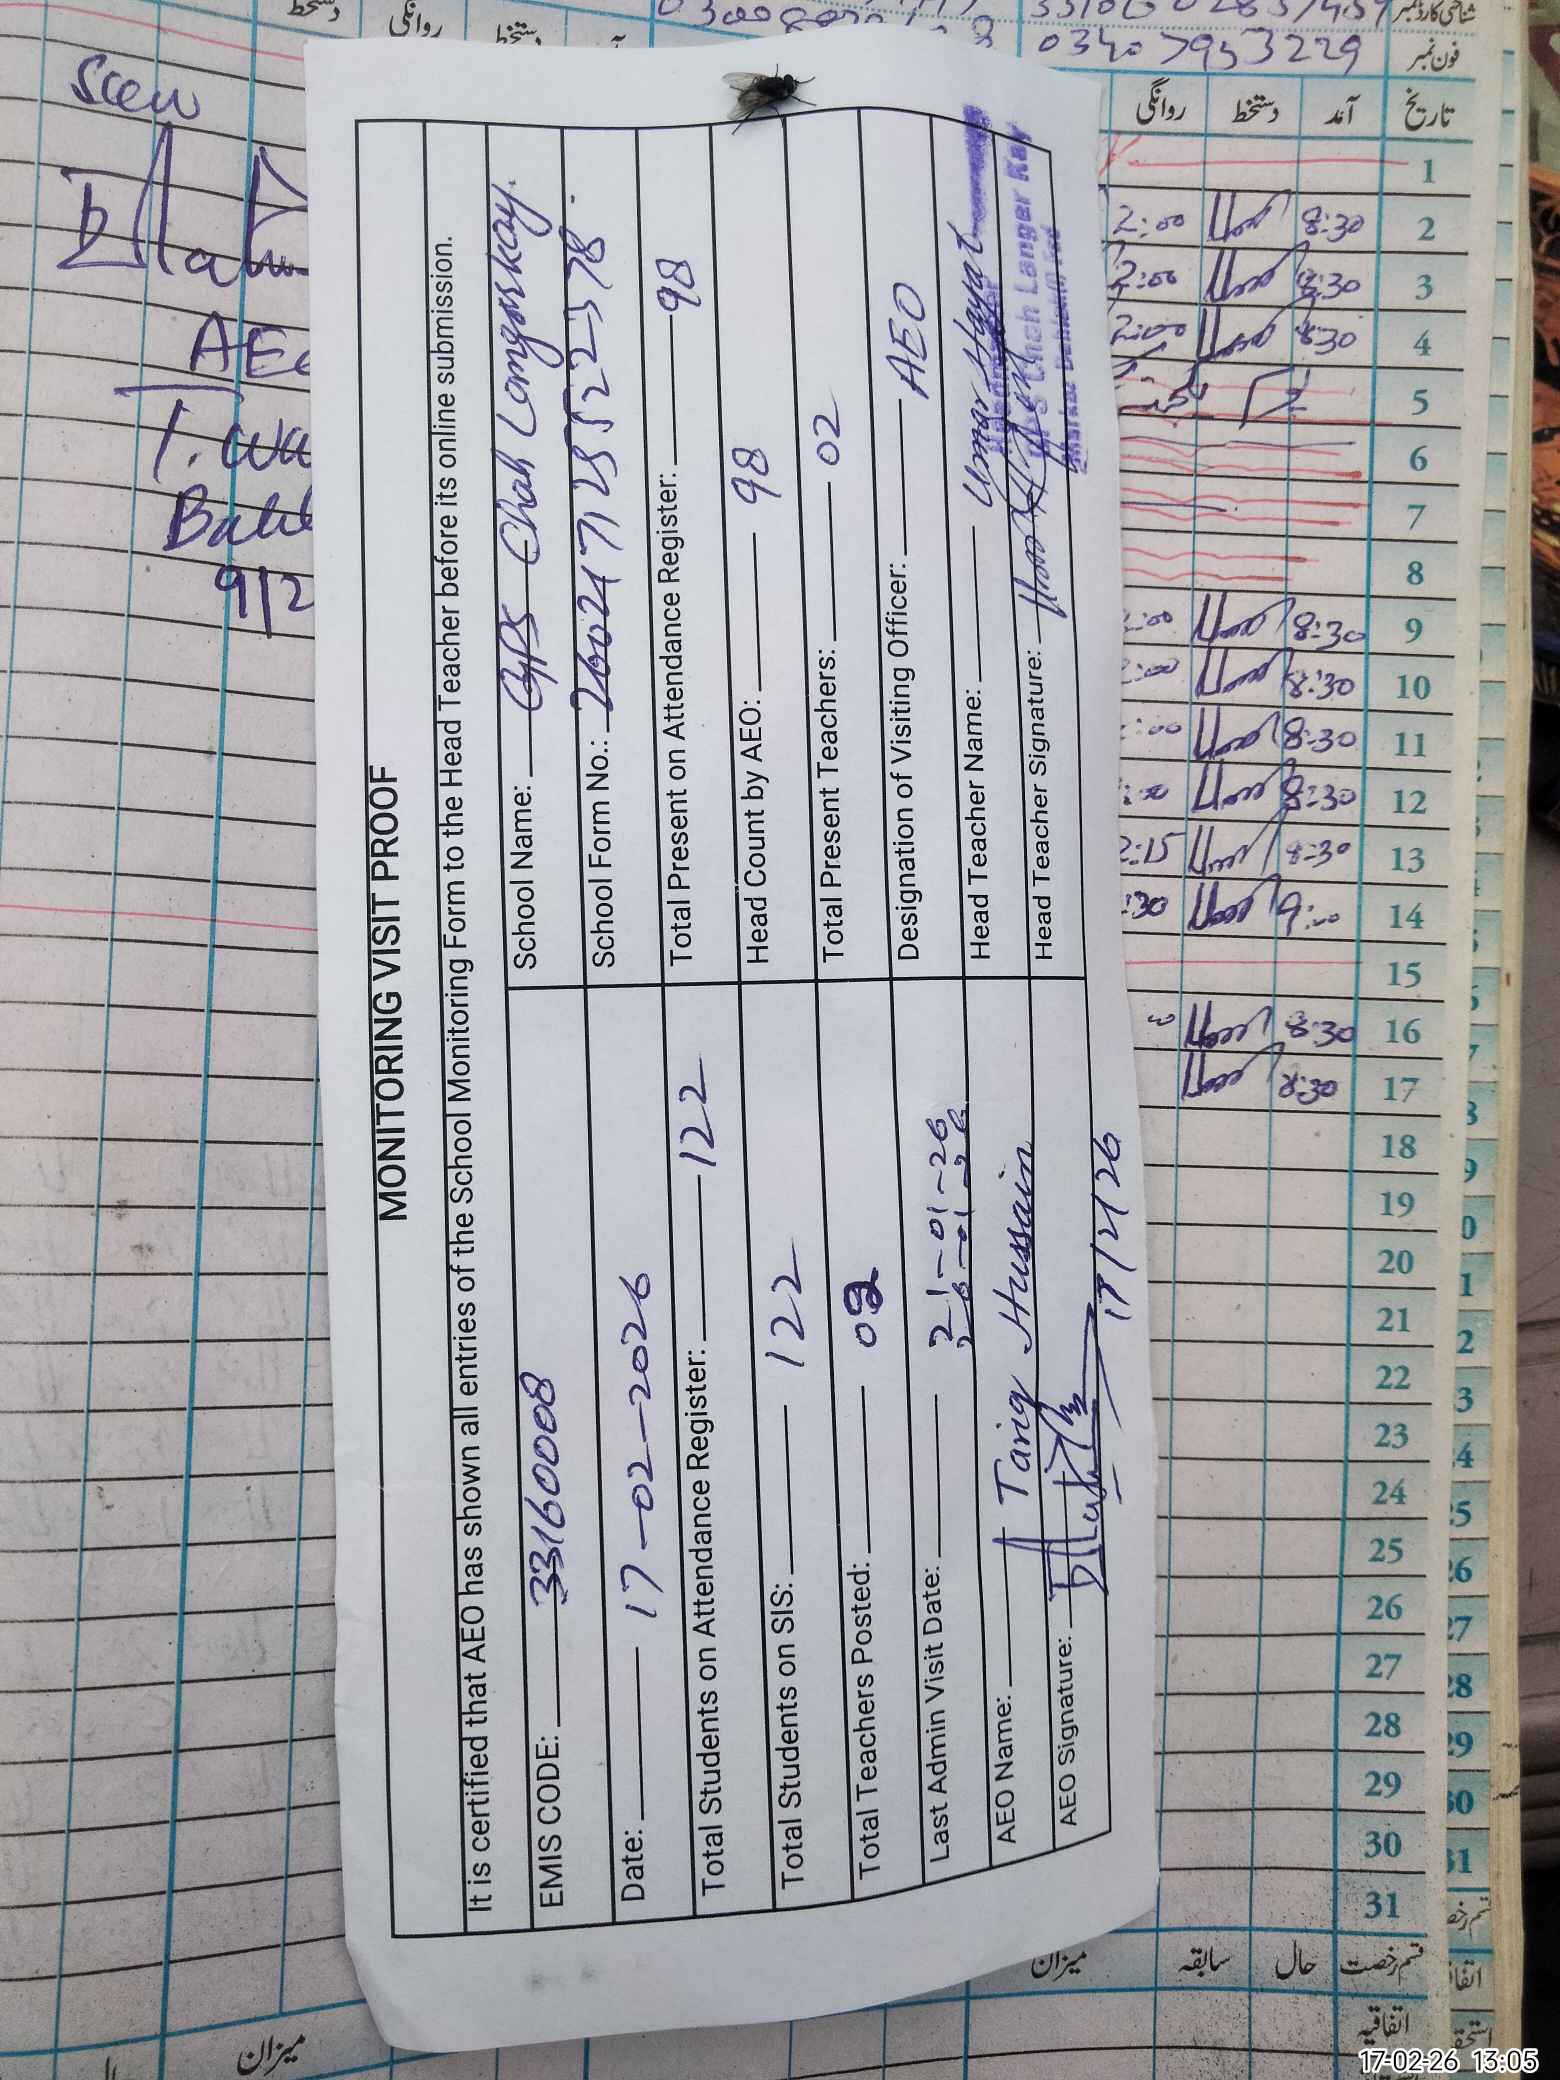 MONITORING VISIT PROOF
It is certified that AEO has shown all entries of the School Monitoring Form to the Head Teacher before its online submission.
EMIS CODE: 33160008 School Name: GPS Chah Langarskay.
Date: 17-02-2026 School Form No.:
Total Students on Attendance Register: 122 Total Present on Attendance Register: 98
Total Students on SIS: 122 Head Count by AEO: 98
Total Teachers Posted: 02 Total Present Teachers: 02
Last Admin Visit Date: 21-01-26 Designation of Visiting Officer: AEO
AEO Name: Tariq Hussain Head Teacher Name: Umar Hayat
AEO Signature: Head Teacher Signature:
17/2/26
Chah Langer Kay
Seen
AEO
9/2
شناختی کارڈ نمبر
فون نمبر 03407953229
تاریخ آمد دستخط روانگی
1
2 8:30 2:00
3 8:30 2:00
4 8:30 2:00
5
6
7
8
9 8:30 :00
10 8:30 :00
11 8:30 :00
12 8:30 :00
13 8:30 2:15
14 9:00 :30
15
16 8:30
17 8:30
18
19
20
21
22
23
24
25
26
27
28
29
30
31
قسم رخصت حال سابقہ میزان
اتفاقیہ
میزان
17-02-26 13:05